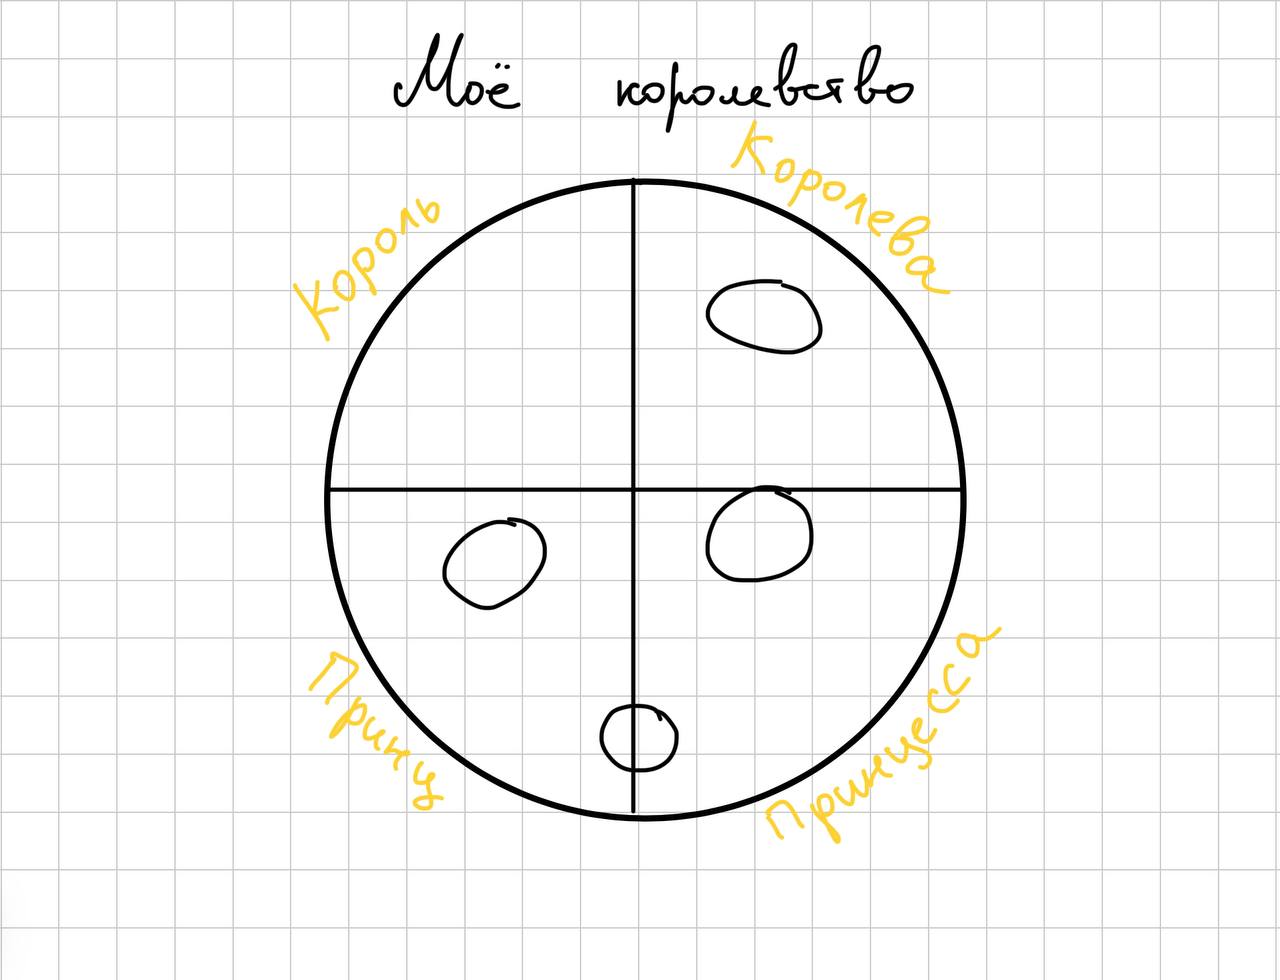 Моё королевство
Король
Королева
Принц
Принцесса